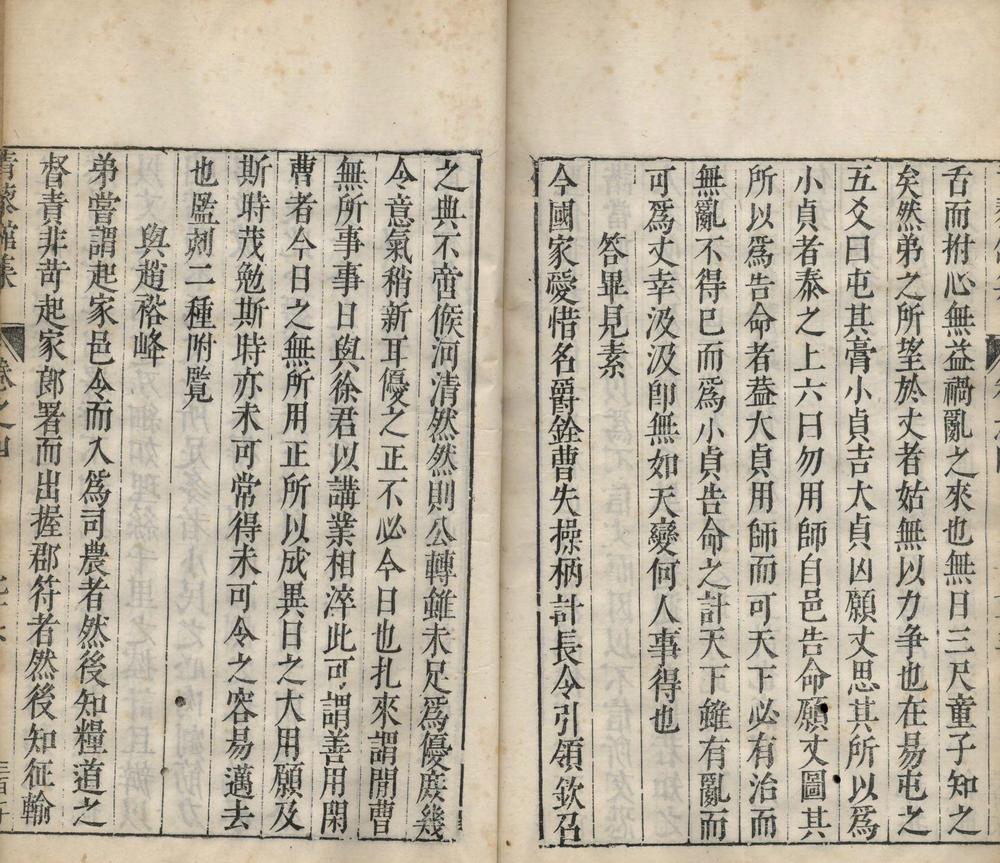 舌而拊心無益禍亂之來也無日三尺童子知之
矣然弟之所望於丈者姑無以力爭也在易屯之
五爻曰屯其膏小貞吉大貞凶願丈思其所以爲
小貞者泰之上六曰勿用師自邑告命願丈圖其
所以爲告命者葢大貞用師而可天下必有治而
無亂不得已而爲小貞告命之計天下雖有亂而
可爲丈幸汲汲卽無如天變何人事得也
答畢見素
今國家愛惜名爵銓曹失操柄計長令引領欽召
之典不啻候河清然然則公轉雖未足爲優庻幾
今意氣稍新耳優之正不必今日也扎來謂開曹
無所事事日與徐君以講業相淬此可謂善用閑
曹者今日之無所用正所以成異日之大用願及
斯時茂勉斯時亦未可常得未可令之容易邁去
也鹽剳二種附覧
與趙裕峰
弟嘗謂起家邑令而入爲司農者然後知糧道之
督責非苛起家郎署而出握郡符者然後知征輸
卷之四